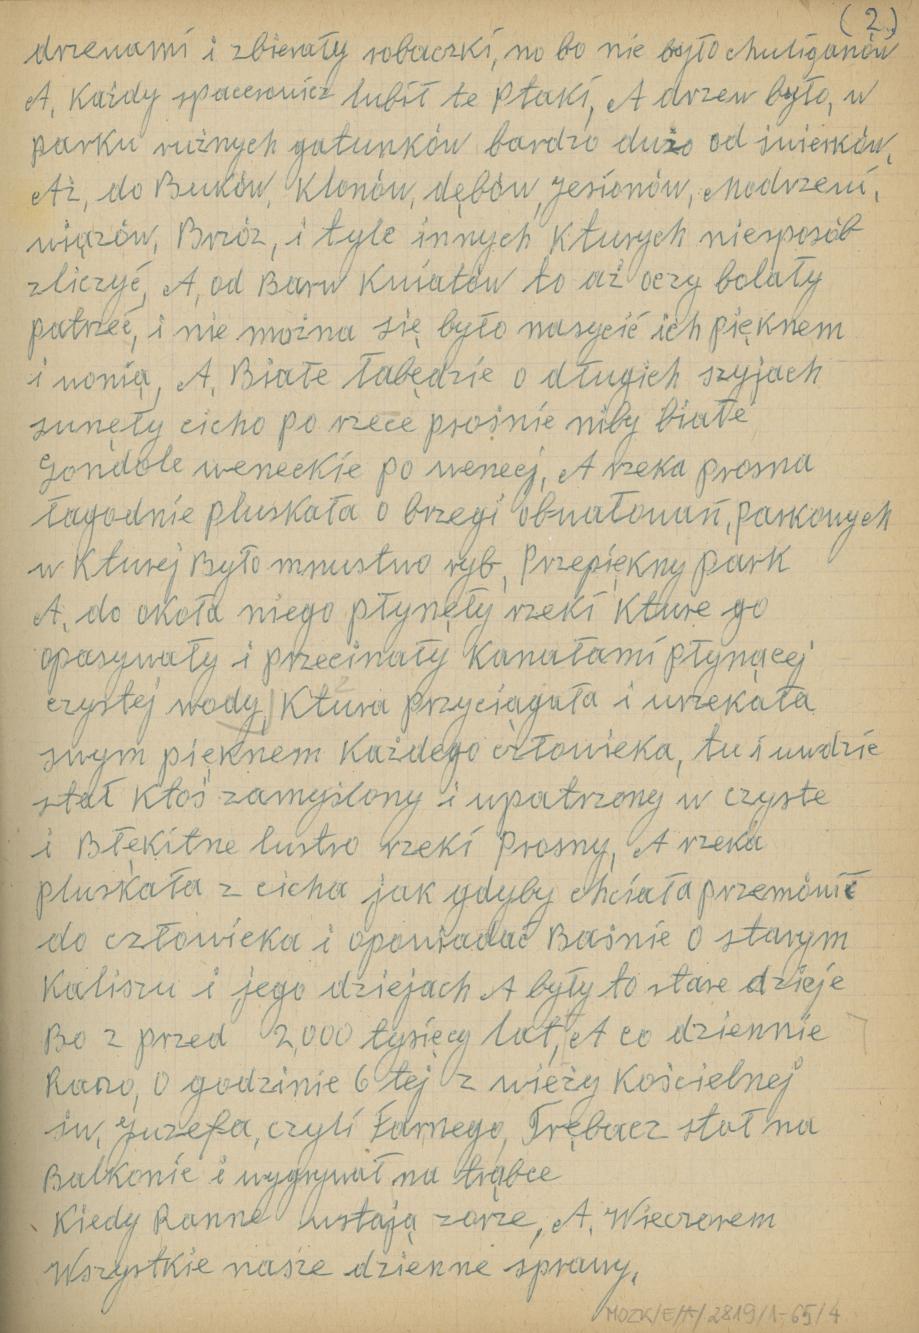 (2.)
drzewami i zbierały robaczki, no bo nie było chuliganów
A, każdy spacerowicz lubił te ptaki, A drzew było, w
parku rużnych gatunków bardzo dużo od świerków,
Aż, do Buków, Klonów, dębów, Jesionów, Modrzewi,
wiązów, Brzóz, i tyle innych Kturych niesposób
zliczyć, A, od Barw Kwiatów to aż oczy bolały
patrzeć, i nie można się było nasycić ich pięknem
i wonią, A, Białe łabędzie o długich szyjach
sunęły cicho po rzece prośnie niby białe
Gondole weneckie po wenecj, A rzeka prosna
łagodnie pluskała o brzegi obwałowań, parkowych
w Kturej Było mnustwo ryb, Przepiękny park
A, do okoła niego płynęły rzeki Kture go
opasywały i przecinały Kanałami płynącej
czystej wody, Ktura przyciągała i urzekała
swym pięknem Każdego człowieka, tu i uwdzie
stał Ktoś zamyślony i wpatrzony w czyste
i Błękitne lustro rzeki Prosny, A rzeka
pluskała z cicha jak gdyby chciała przemówić
do człowieka i opowiadać Baśnie O starym
Kaliszu i jego dziejach A były to stare dzieje
Bo z przed 2,000 tysięcy lat, A co dziennie
Rano, O godzinie 6 tej z wieży Kościelnej
św, Juzefa, czyli Farnego, Trębacz stał na
Balkonie i wygrywał na trąbce
Kiedy Ranne wstają zorze, A. Wieczorem
Wszystkie nasze dzienne sprawy,
MOZK/E/A/2819/1-65/4